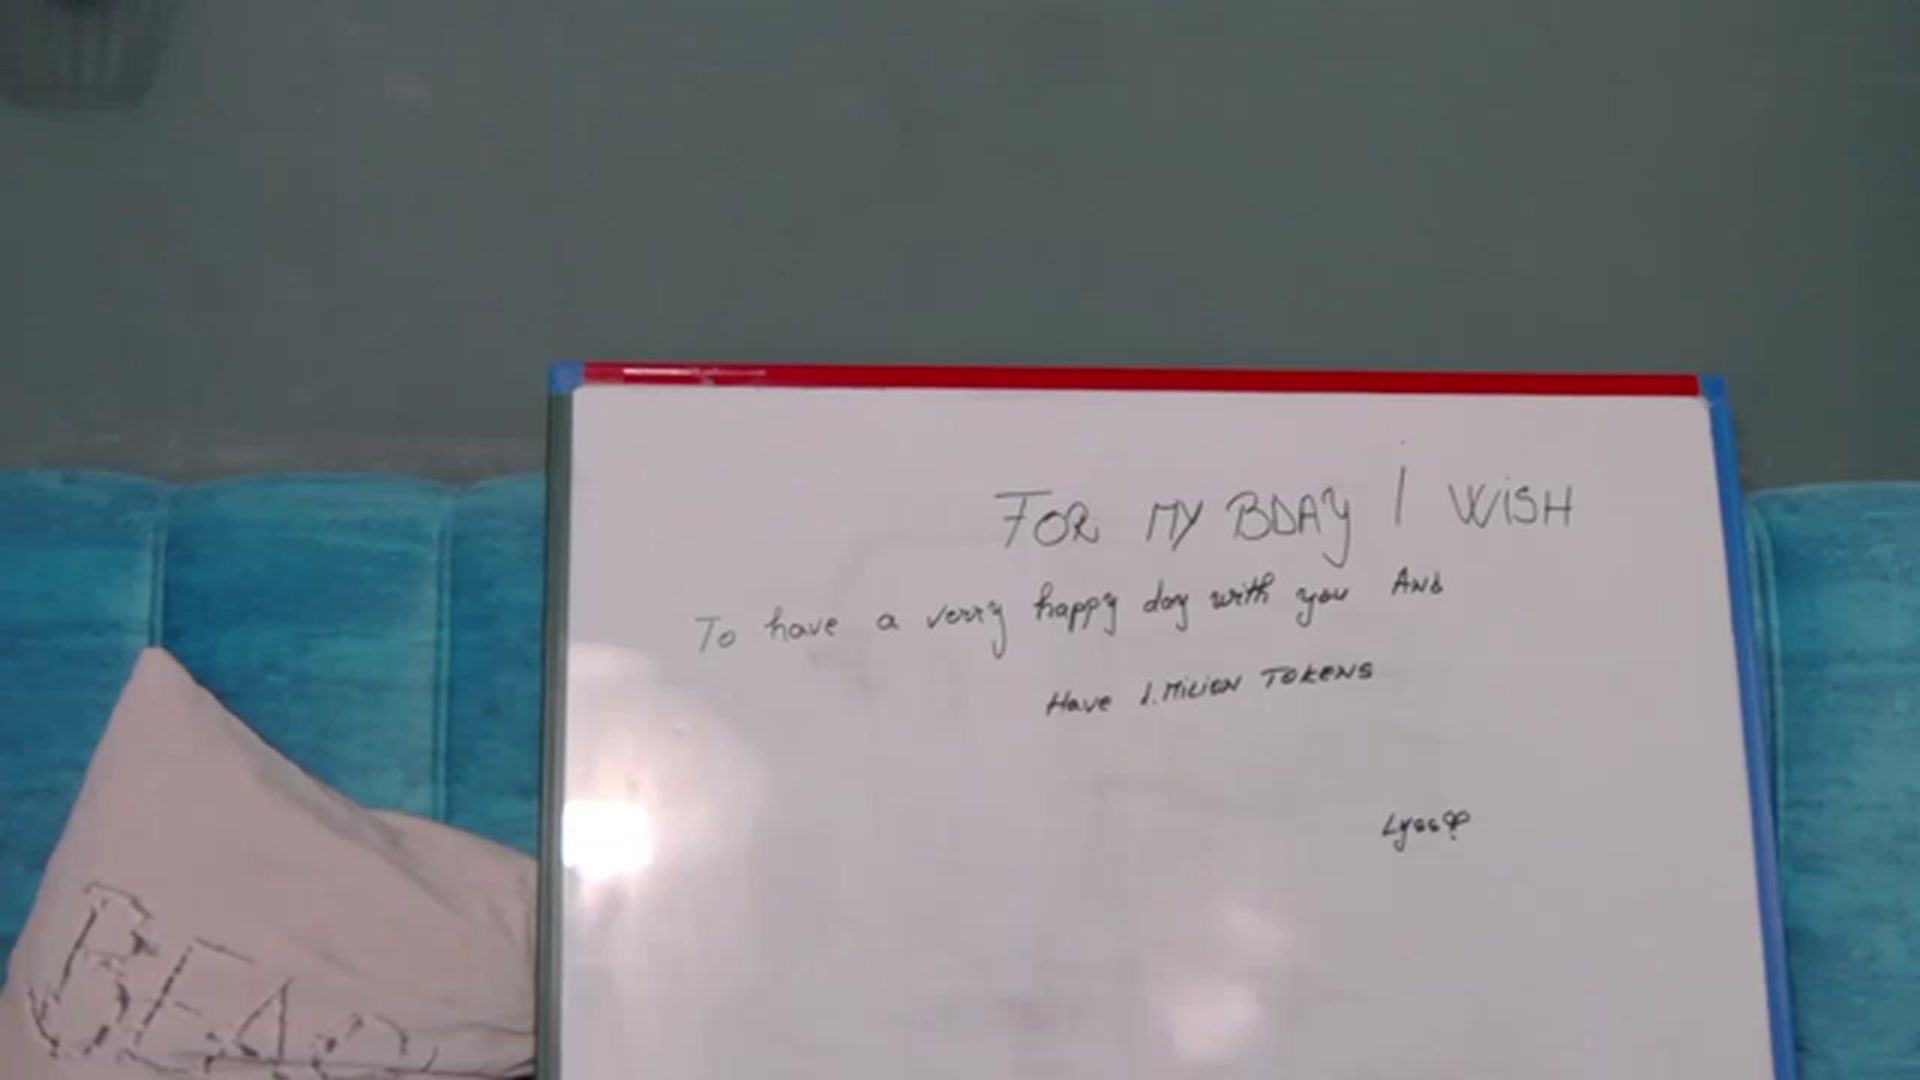 FOR MY BDAY I WISH
To have a verry happy day with you AND
Have 1.MILION TOKENS
Lyss
BEAR